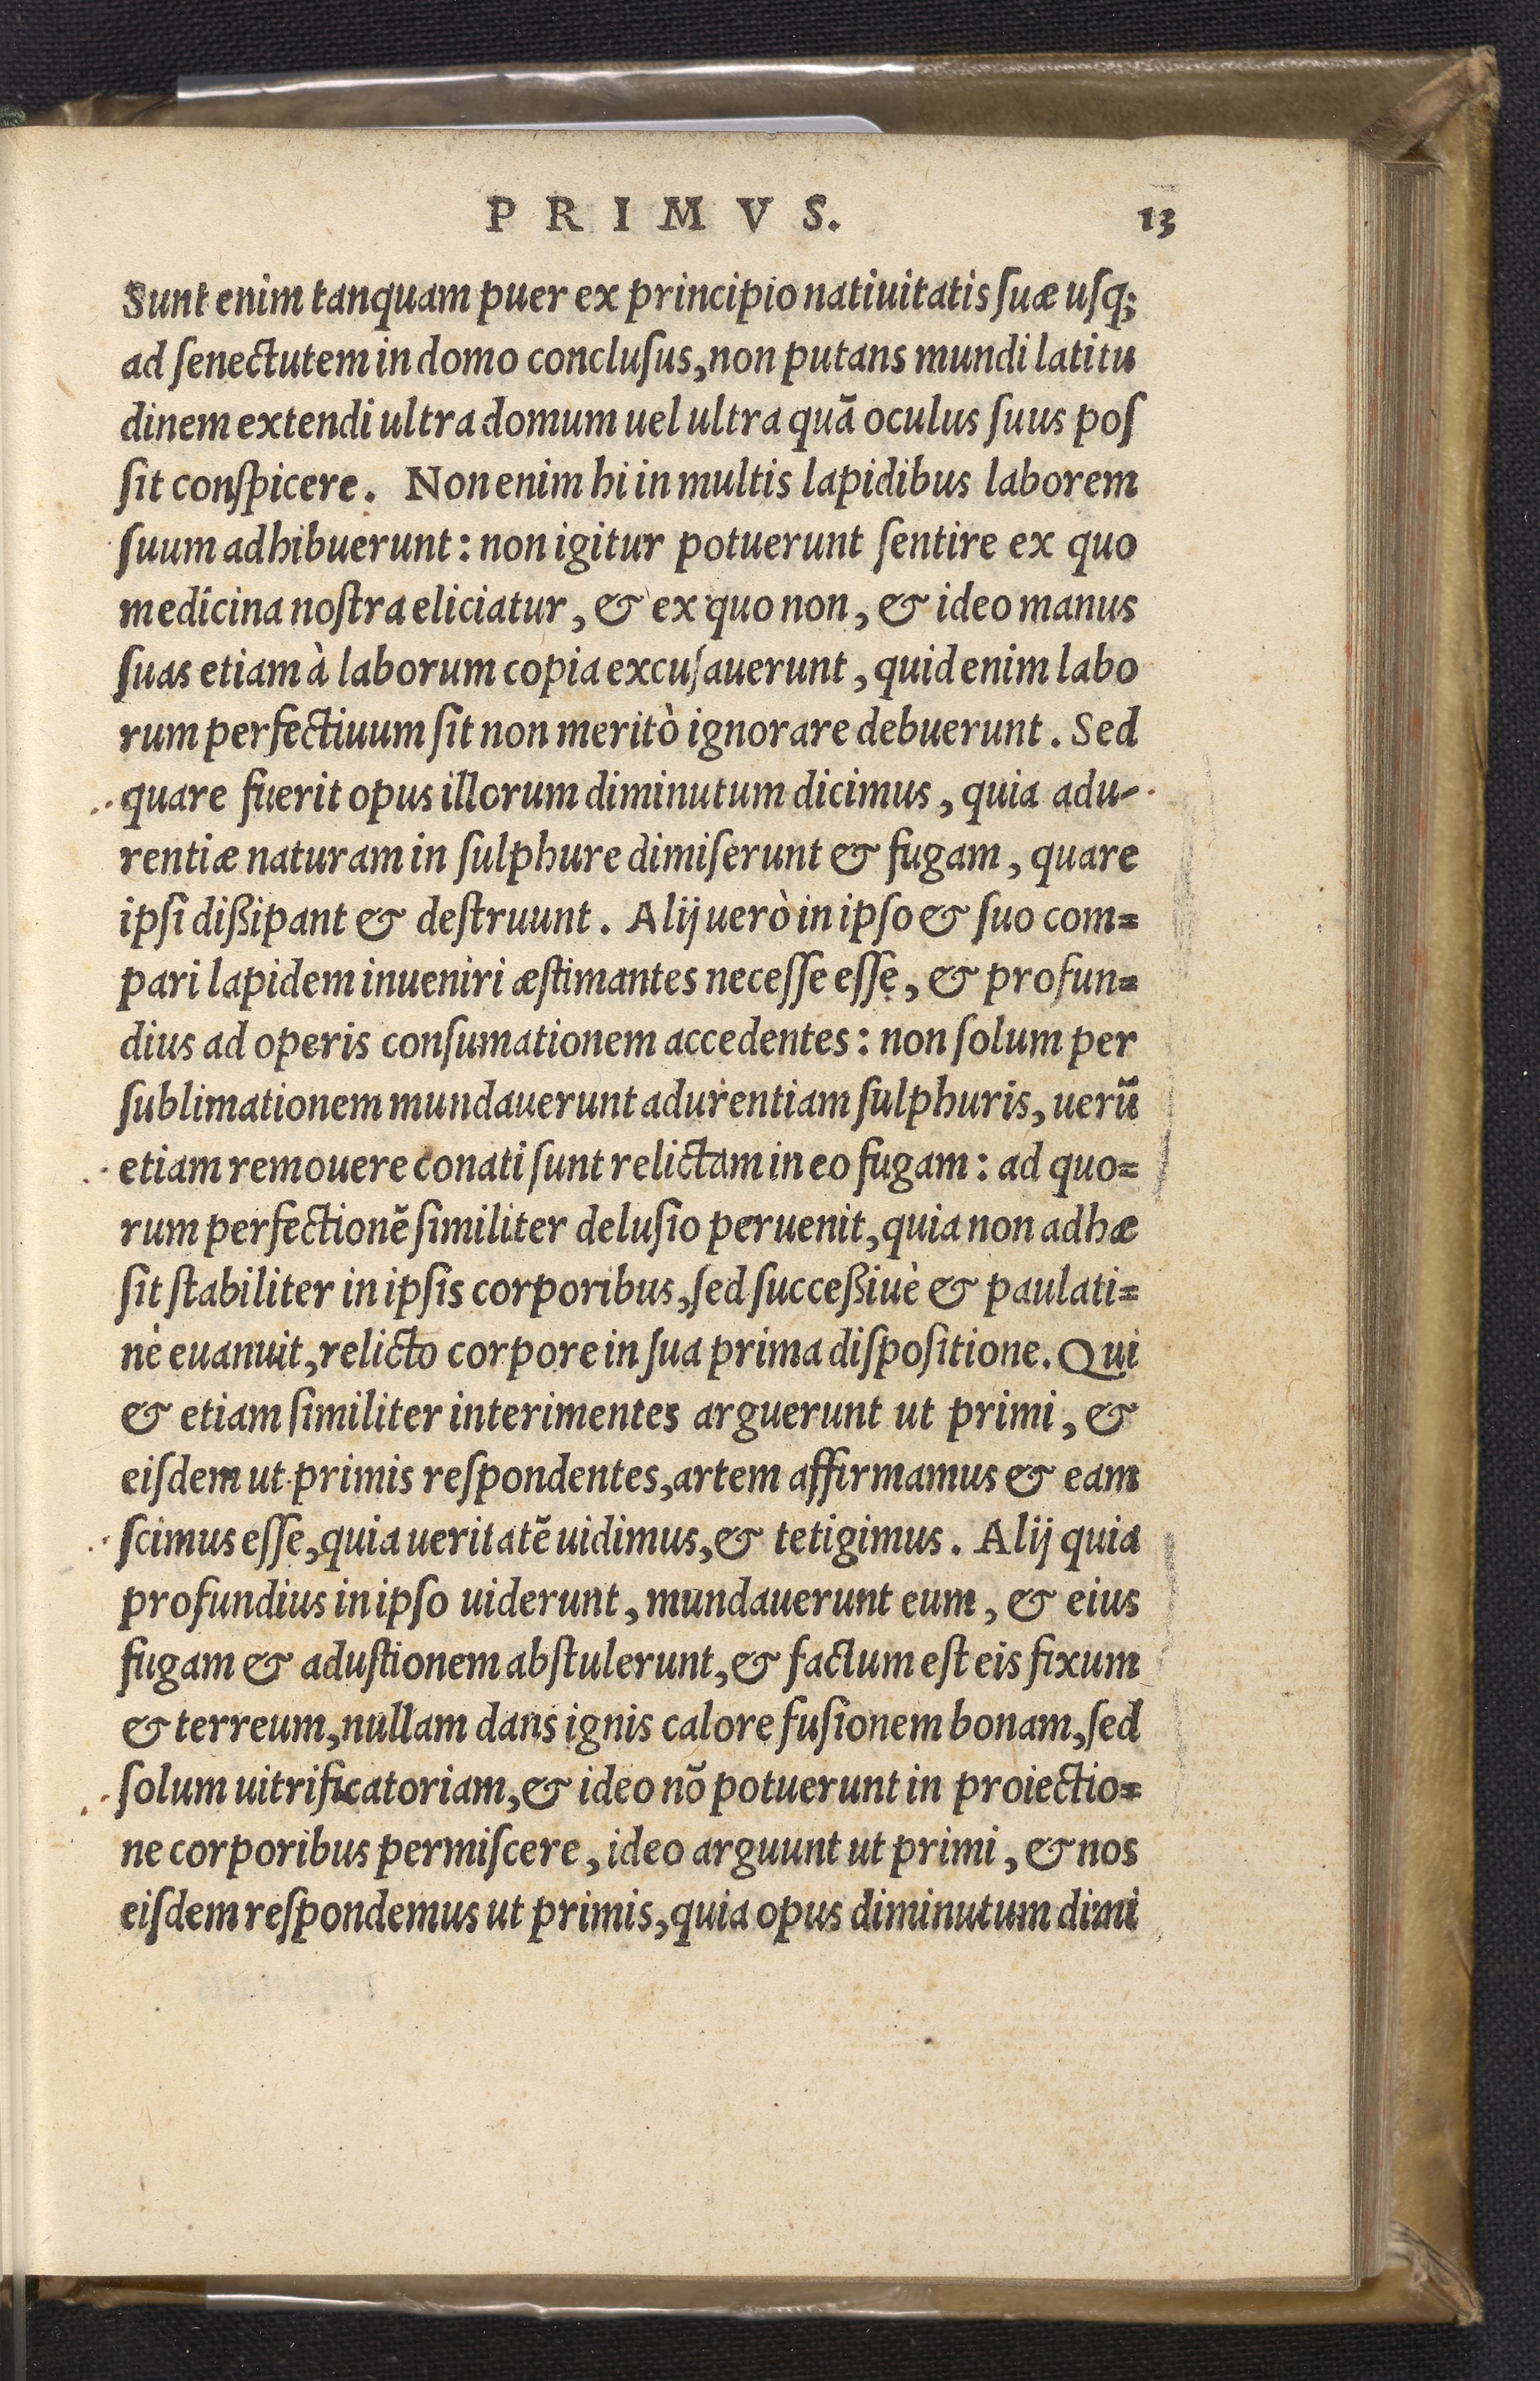 PRIMVS. 13
Sunt enim tanquam puer ex principio natiuitatis ſuæ uſq;
ad ſenectutem in domo concluſus, non putans mundi latitu
dinem extendi ultra domum uel ultra quā oculus ſuus poſ
ſit conſpicere. Non enim hi in multis lapidibus laborem
ſuum adhibuerunt: non igitur potuerunt ſentire ex quo
medicina noſtra eliciatur, & ex quo non, & ideo manus
ſuas etiam à laborum copia excuſauerunt, quid enim labo
rum perfectiuum ſit non meritò ignorare debuerunt. Sed
quare fuerit opus illorum diminutum dicimus, quia adu-
rentiæ naturam in ſulphure dimiſerunt & fugam, quare
ipſi dißipant & deſtruunt. Alij uerò in ipſo & ſuo com=
pari lapidem inueniri æſtimantes neceſſe eſſe, & profun=
dius ad operis conſumationem accedentes: non ſolum per
ſublimationem mundauerunt adurentiam ſulphuris, uerū
etiam remouere conati ſunt relictam in eo fugam: ad quo=
rum perfectionē ſimiliter deluſio peruenit, quia non adhæ
ſit ſtabiliter in ipſis corporibus, ſed ſucceßiuè & paulati=
nè euanuit, relicto corpore in ſua prima diſpoſitione. Qui
& etiam ſimiliter interimentes arguerunt ut primi, &
eiſdem ut primis reſpondentes, artem affirmamus & eam
ſcimus eſſe, quia ueritatē uidimus, & tetigimus. Alij quia
profundius in ipſo uiderunt, mundauerunt eum, & eius
fugam & aduſtionem abſtulerunt, & factum eſt eis fixum
& terreum, nullam dans ignis calore fuſionem bonam, ſed
ſolum uitrificatoriam, & ideo nō potuerunt in proiectio=
ne corporibus permiſcere, ideo arguunt ut primi, & nos
eiſdem reſpondemus ut primis, quia opus diminutum dimi